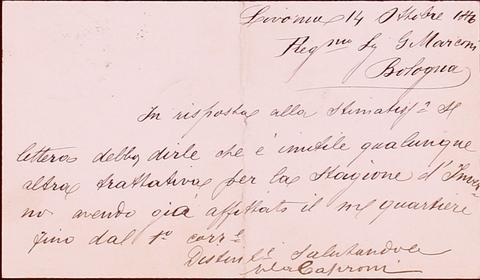 Livorno 14 Ottobre 1886
Preg mo Sg G Marconi
Bologna
In risposta alla stimatissa Sa
lettera debbo dirle che è inutile qualunque
altra trattativa per la Stagione d'Inver
no avendo già affittato il mio quartiere
fino dal 1° corre
Distinte salutandola
Caproni